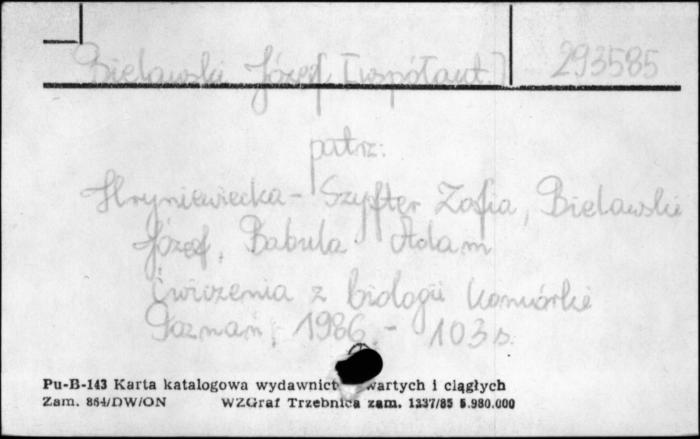 Bielawski Józef [współaut.] 293585
patrz:
Hryniewiecka-Szyfter Zofia, Bielawski
Józef, Babula Adam
Ćwiczenia z biologii komórki
Poznań, 1986 - 103 s.
Pu-B-143 Karta katalogowa wydawnict wartych i ciągłych
Zam. 864/DW/ON WZGraf Trzebnica zam. 1337/85 5.980.000